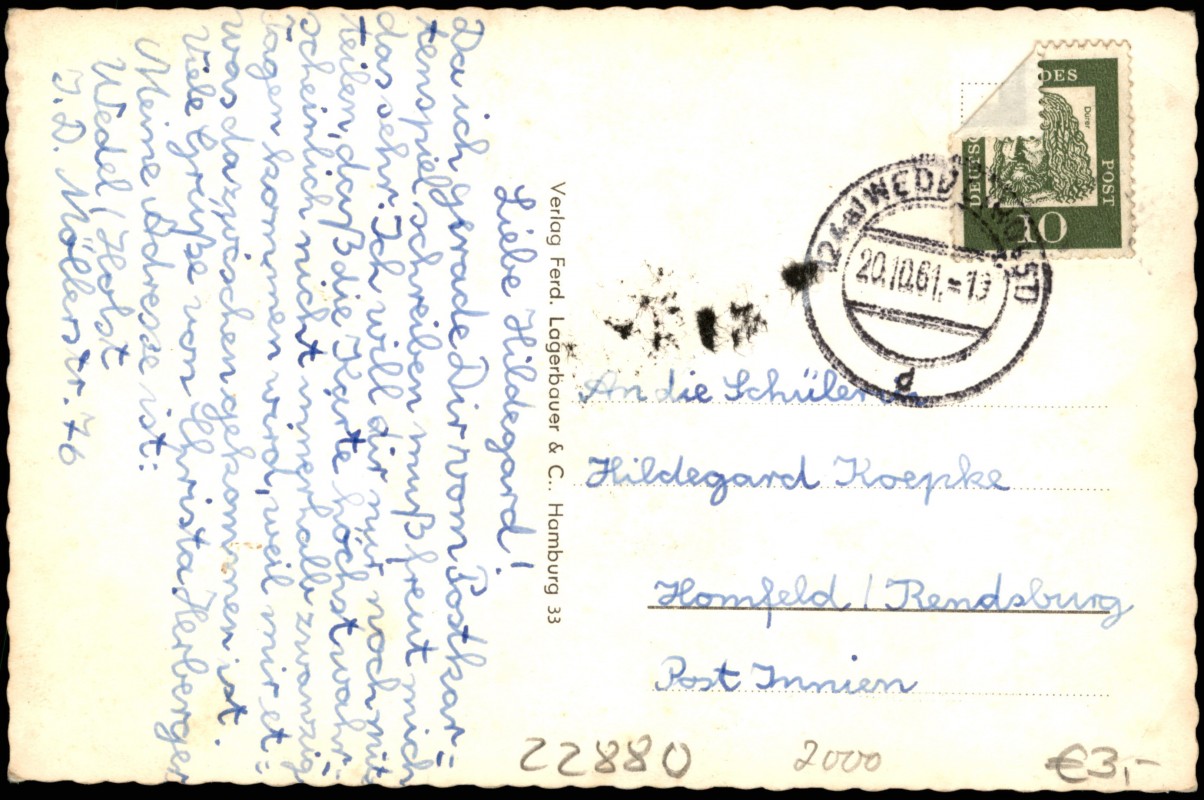 Liebe Hildegard!
Da ich gerade Dir vom Postkar=
tenspiel schreiben muß freut mich
das sehr. Ich will dir nur noch mit
teilen, daß die Karte höchstwahr=
scheinlich nicht innerhalb zwanzig
Tagen kommen wird, weil mir et=
was dazwischengekommen ist.
Viele Grüße von Christa Herberger
Meine Adresse ist:
Wedel / Holst
J. D. Möllerstr. 76
Verlag Ferd. Lagerbauer & C., Hamburg 33
DES
POST
Dürer
10
(24a) WEDEL
20.10.61.-19
d
An die Schülerin
Hildegard Koepke
Homfeld / Rendsburg
Post Innien
22880
2000
€3,-